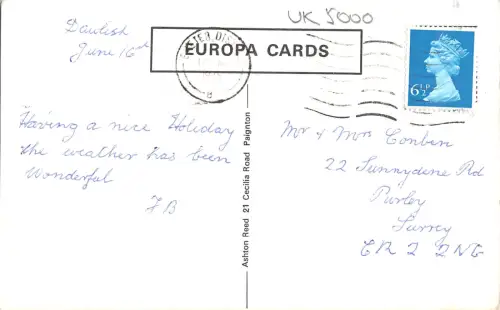 UK 5000
Dawlish
June 16th
EUROPA CARDS
6½P
Having a nice Holiday
the weather has been
Wonderful
FB
Ashton Reed 21 Cecilia Road Paignton
Mr & Mrs Conben
22 Sunnydene Rd
Purley
Surrey
CR2 2NG